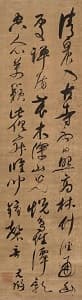 清晨入古寺初日照高林竹徑通
幽處禪房花木深山光悅鳥性潭影
空人心萬籟此俱寂惟聞鐘磬音